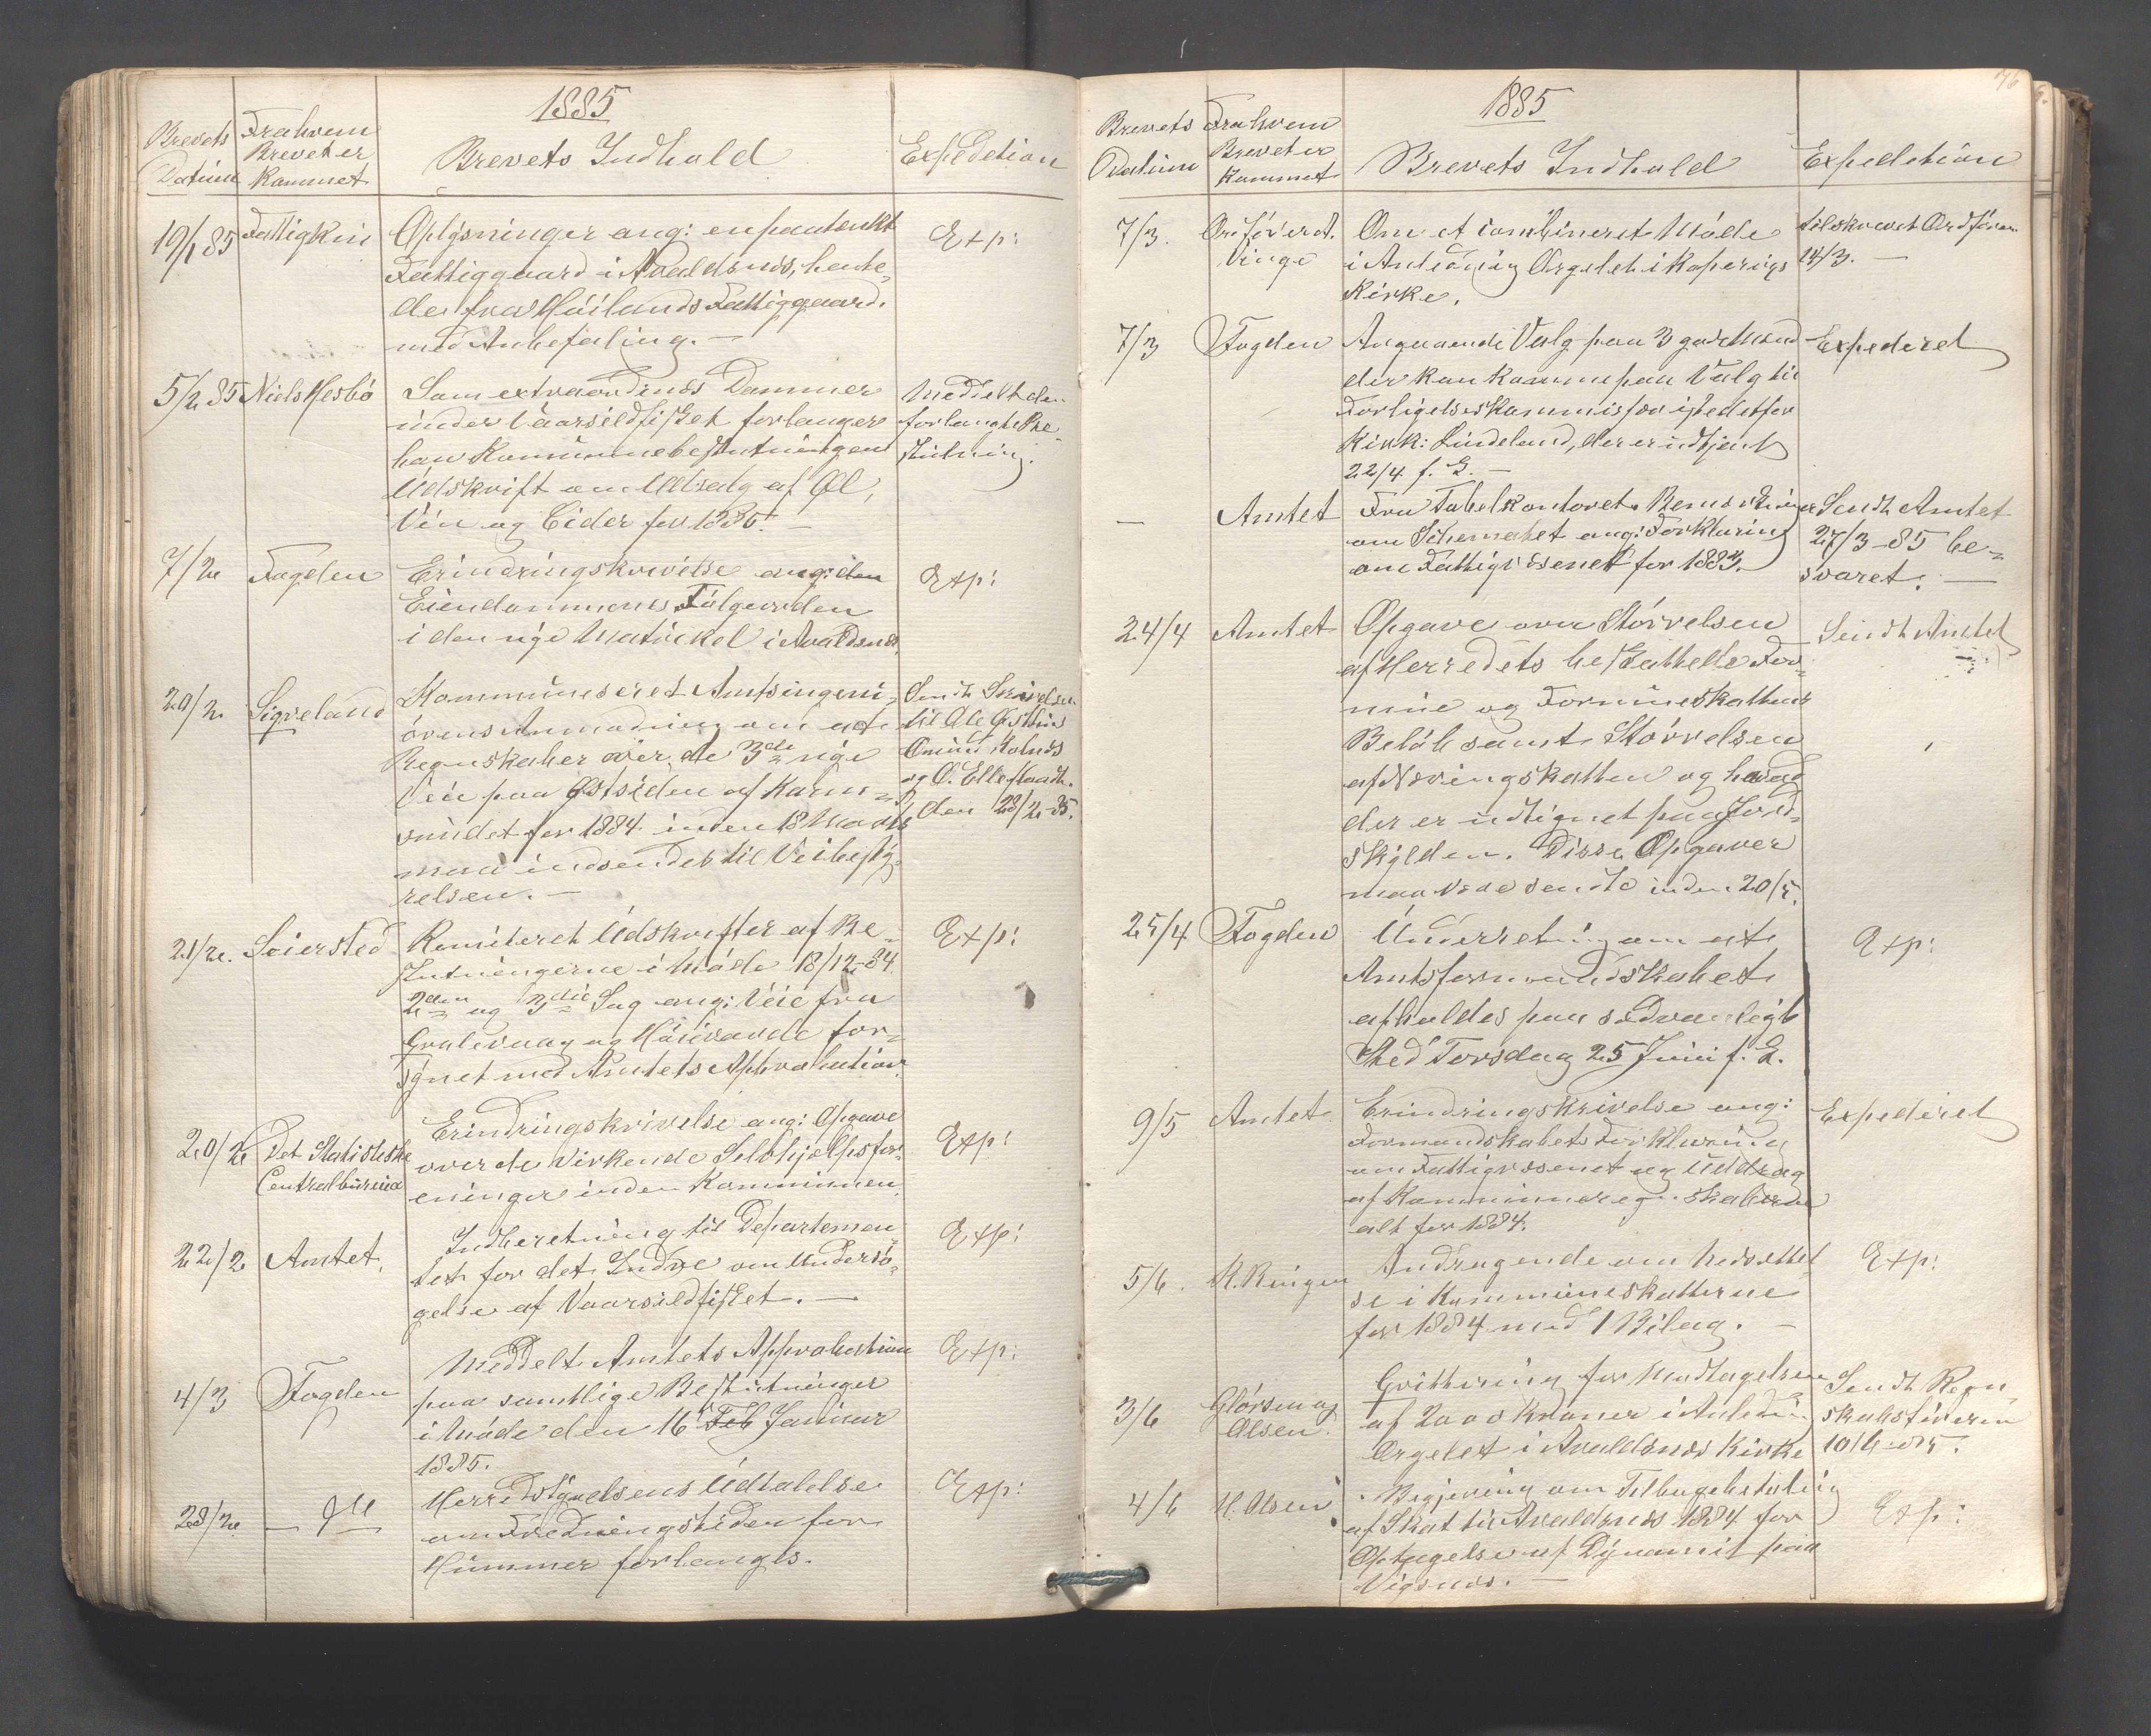 1885
Brevets Datum
Frahvem Brevet er kommet
Brevets Indhold
Expedition
19/1 85
Fattigkm
Oplysninger ang: en paatænkt
Fattiggaard i Avaldsnæs, hente-
de fra Høilands Fattiggaard.
med Anbefaling. -
Exp:
5/2 85
Niels Hesbø
Som extraordinær Dommer
under Vaarsildfisket forlanger
han Kommunebeslutningen
Udskrift om Udsalg af Øl,
Vin og Cider for 1885. -
Meddelt den
forlangte Be-
slutning.
7/2
Fogden
Erindringskrivelse ang: den
Eiendommenes Følgeorden
i den nye Matrickel i Avaldsnæs.
Exp:
20/2
Sigveland
Kommuniseret Amtsingeni-
ørens Anmodning om at
Regnskaber over de 3de nye
Veie paa Østsiden af Karm-
sundet for 1884 inden 18 Marts
maa indsendes til Veibesty-
relsen. -
Sendt Skrivelser
til Ole Østhus
Omund Kolnes
og O. Elle
den 28/2-85.
21/2.
Seiersted
Remiteret Udskrifter af Be-
slutningerne i Møde 18/12-84
2den og 3die Sag ang: Veie fra
og for-
synet med Amtets Approbation.
Exp:
20/2
Det Statistiske
Centralbureau
Erindringskrivelse ang: Opgave
over de virkende Selvhjælpsfor-
eninger inden Kommunen.
Exp:
22/2
Amtet.
Indberetning til Departemen-
tet for det Indre om Undersø-
gelse af Vaarsildfisket. -
Exp:
4/3
Fogden
Meddelt Amtets Approbation
paa samtlige Beslutninger
i Møde den 16 Feb Januar
1885.
Exp:
28/2
Herredstyrelsens Udtalelse
om Fredningstiden for
Hummer forlanges.
Exp:
76
1885
Brevets Datum
Frahvem Brevet er Kommet
Brevets Indhold
Expedition
7/3.
Ordføverd.
Vinge
Om et combineret Møde
i Anledning Orgelet i Kopervigs
Kirke.
tilskrevet Ordføreren
14/3. -
7/3
Fogden
Angaaende Valg paa 3 gode Mænd
der kan komme paa Valg til
Forligelseskommissær istedetfor
Kirk: Lindeland, der er udtjent
22/4 f. G. -
Expederet
-
Amtet
Fra Tabelkontoret Bemærkninger
om Schemaet ang: Forklaring
om Fattigvæsenet for 1883.
Sendt Amtet
27/3-85 be-
svaret. -
24/4
Amtet
Opgave over Størrelsen
af Herredets beskattede For-
mue og Formueskattens
Beløb samt Størrelsen
af Næringskatten og hvad
der er udlignet paa Jord-
skylden. Disse Opgaver
maa være sendte inden 20/5.
Sendt Amtet
25/4
Fogden
Underretning om at
Amtsformandskabet
afholdes paa sædvanligt
Sted Torsdag 25 Juni f. G.
Exp:
9/5
Amtet
Erindringskrivelse ang:
Formandskabets Forklaring
om Fattigvæsenet og Uddrag
af Kommuneregnskaberne
alt for 1884.
Expederet
5/6.
K. Ringen
Andragende om Nedsættel-
se i Kommuneskatterne
for 1884 med 1 Bilag. -
Exp:
3/6
Glørsen og
Olsen.
Qvittering for Modtagelsen
af 2000 kroner i Anledning
Orgelet i Avaldsnæs Kirke
Sendt Regn-
skabsføreren
10/6-85.
4/6
H. Olsen
Begjæring om Tilbagebetaling
af Skat til Avaldsnæs 1884 for
Optagelse af Dynamit paa
Vigsnæs. -
Exp: